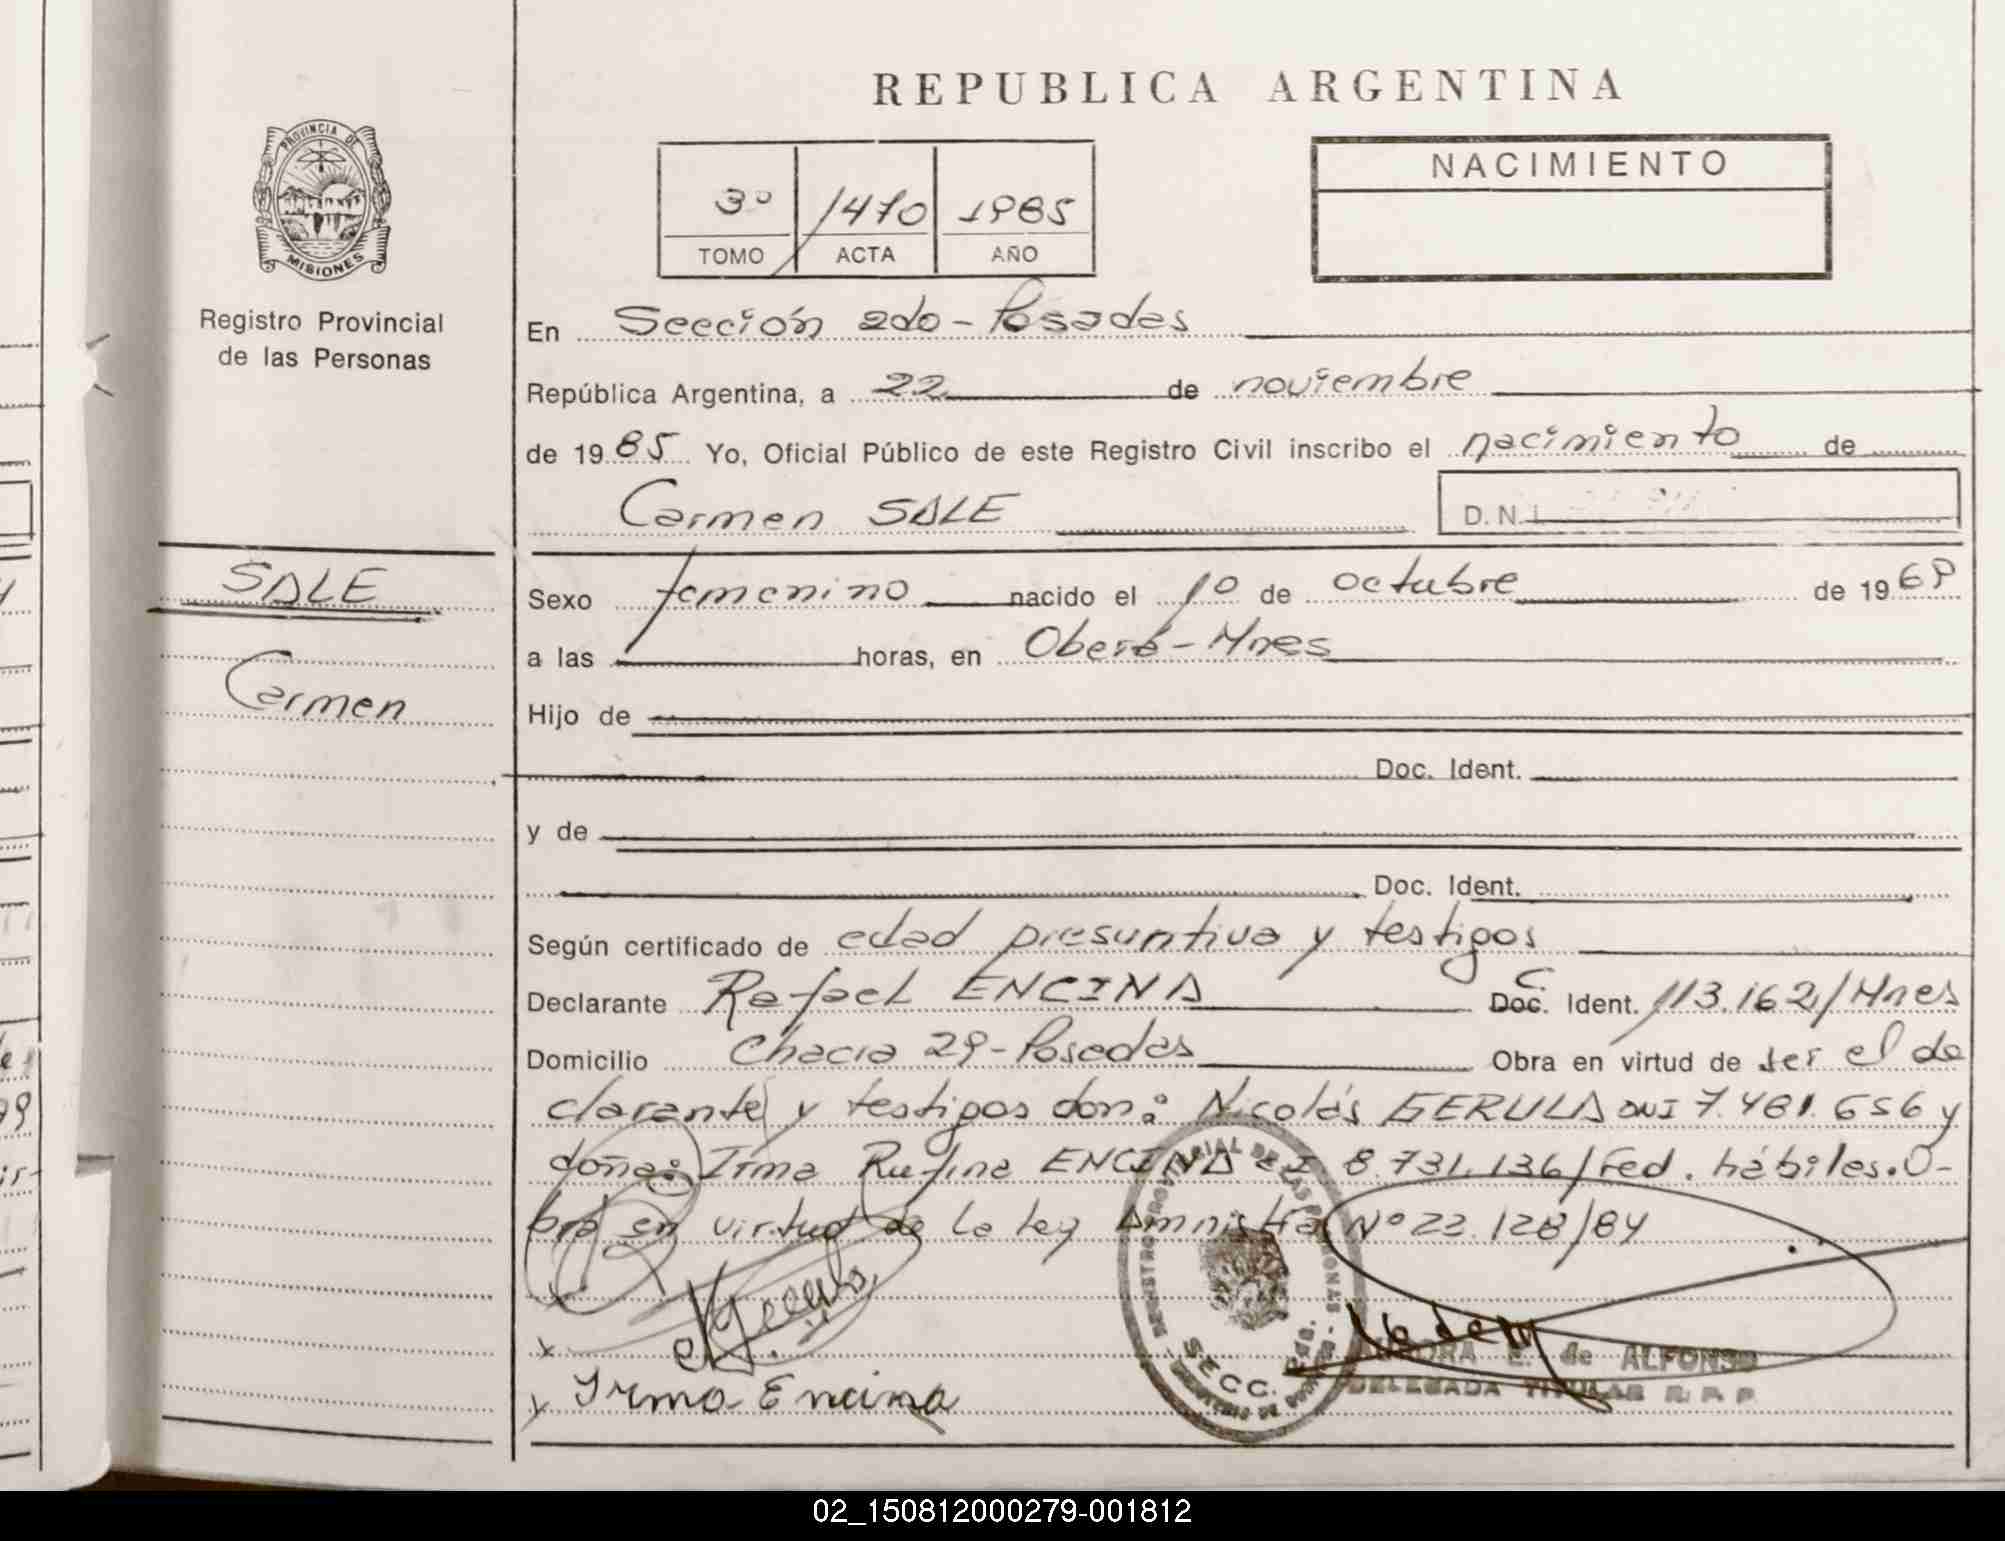 REPUBLICA ARGENTINA
PROVINCIA DE
MISIONES
Registro Provincial
de las Personas
3º 1470 1985
TOMO ACTA AÑO
NACIMIENTO
En Sección 2da - Posadas
República Argentina, a 22 de noviembre
de 1985 Yo, Oficial Público de este Registro Civil inscribo el nacimiento de
Carmen SALE D. N. I.
SALE
Carmen
Sexo femenino nacido el 1º de octubre de 1969
a las horas, en Oberá - Mnes
Hijo de
Doc. Ident.
y de
Doc. Ident.
Según certificado de edad presuntiva y testigos
Declarante Rafael ENCINA C. Doc. Ident. 113.162/Mnes
Domicilio Chacra 29 - Posadas Obra en virtud de ser el de
clarante y testigos don: Nicolás GERULA DNI 7.481.656 y
doña: Irma Rufina ENCINA CI 8.731.136/Fed. hábiles. O-
bra en virtud de la ley Amnistía Nº 22.128/84
Irma Encina
SECC.
E. de ALFONSO
DELEGADA TITULAR R. P. P.
02_150812000279-001812